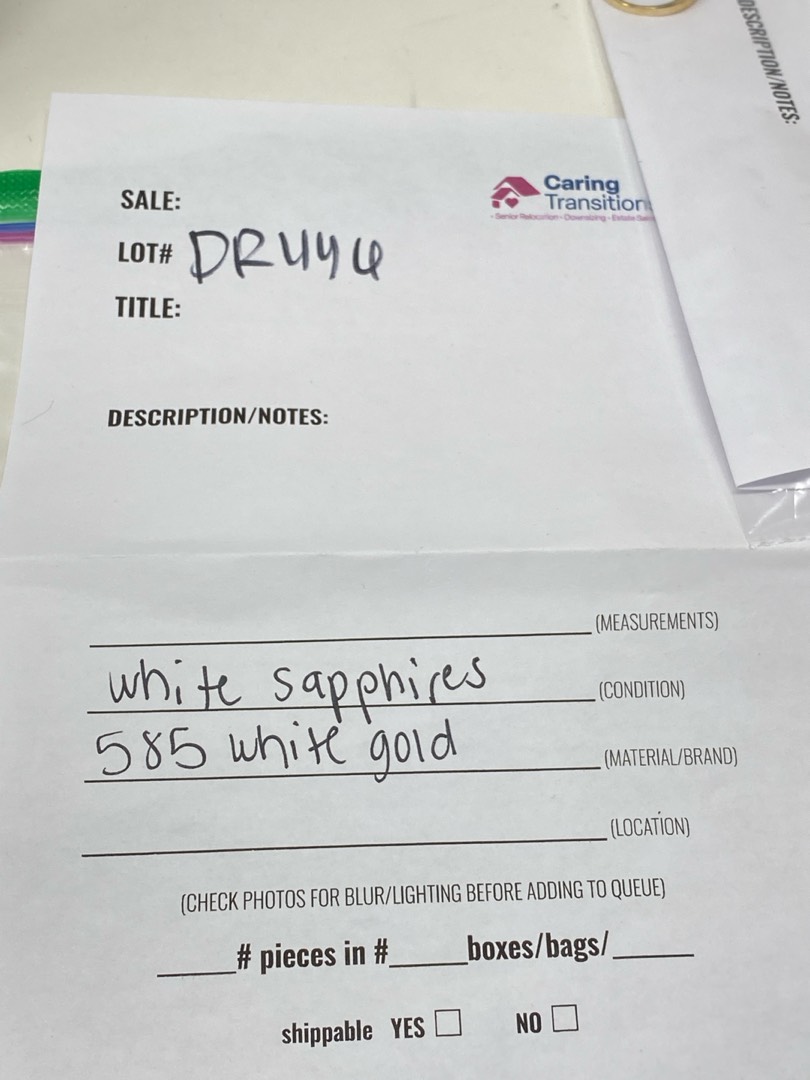 DESCRIPTION/NOTES:
Caring
Transition
- Senior Relocation - Downsizing - Estate
SALE:
LOT# DR4446
TITLE:
DESCRIPTION/NOTES:
(MEASUREMENTS)
white sapphires (CONDITION)
585 white gold (MATERIAL/BRAND)
(LOCATION)
(CHECK PHOTOS FOR BLUR/LIGHTING BEFORE ADDING TO QUEUE)
_____# pieces in #_____boxes/bags/_____
shippable YES ☐ NO ☐